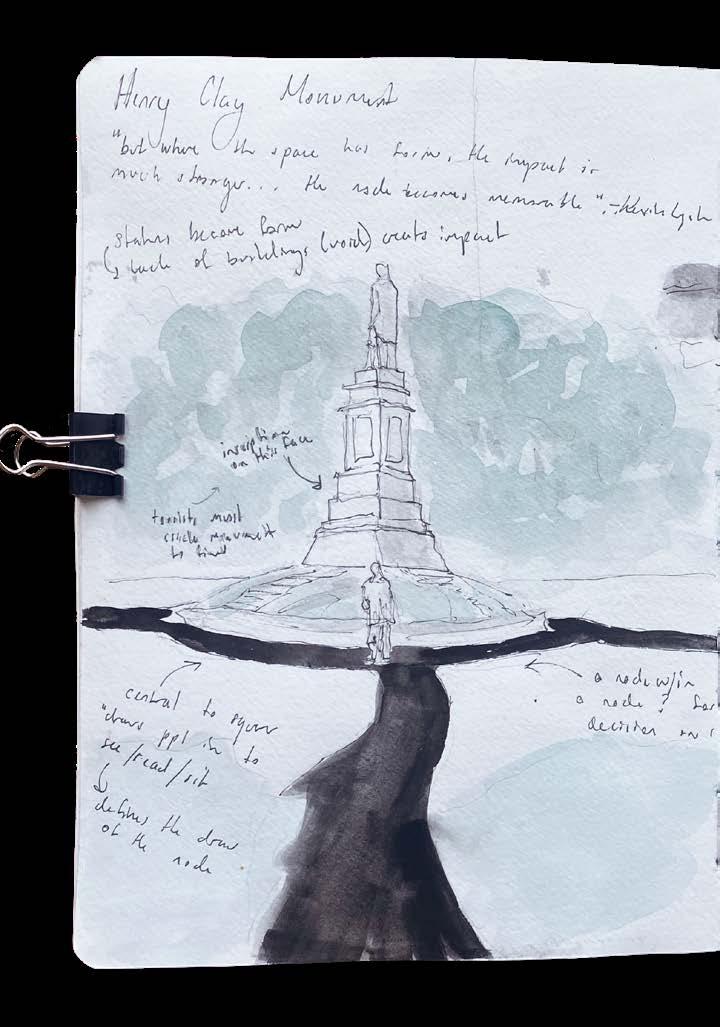 Henry Clay Monument
"but where the space has form, the impact is
much stronger... the node becomes memorable". - Kevin Lynch
statues become form
lack of buildings (void) creats impact
inscription
on this face
tourists must
circle monument
to find
central to square
"draws ppl in to
see/read/sit
defines the draw
of the node
a node w/in
a node?
decision